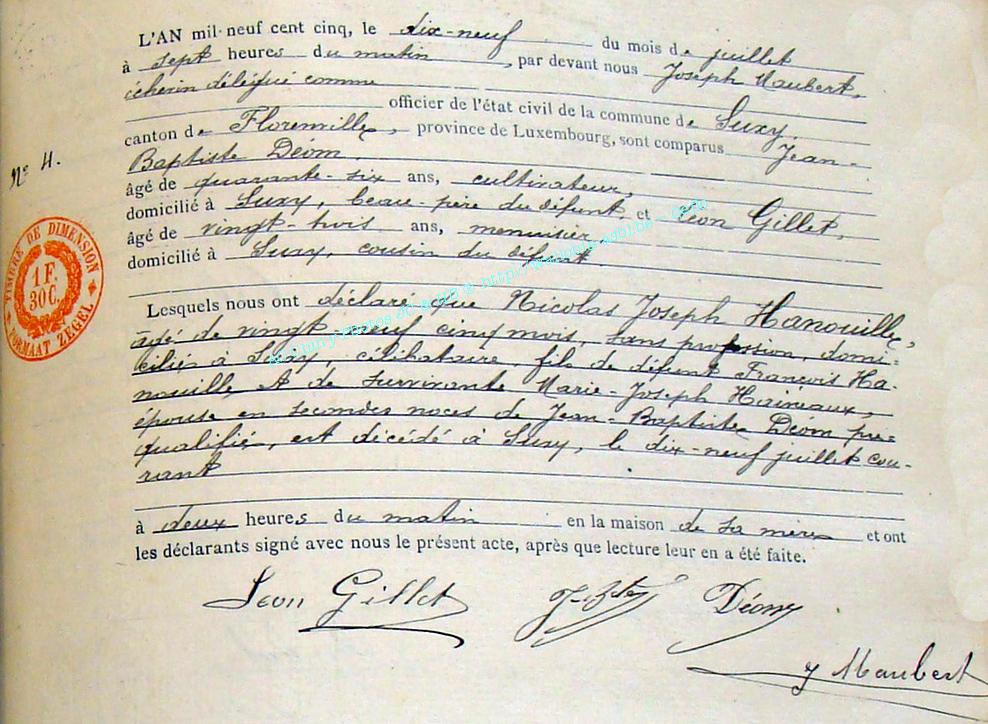 L'AN mil-neuf cent cinq, le dix-neuf du mois de juillet
à sept heures du matin, par devant nous Joseph Maubert,
échevin délégué comme
officier de l'état civil de la commune de Suxy,
canton de Florenville, province de Luxembourg, sont comparus Jean-
Nº 4.
Baptiste Déom
âgé de quarante-six ans, cultivateur,
domicilié à Suxy, beau-père du défunt et Léon Gillet,
âgé de vingt-trois ans, menuisier,
domicilié à Suxy, cousin du défunt
TIMBRE DE DIMENSION
1 F.
30 C.
FORMAAT ZEGEL
Lesquels nous ont déclaré que Nicolas Joseph Hanouille,
âgé de vingt-neuf cinq mois, sans profession, domi-
cilié à Suxy, célibataire, fils de défunt François Ha-
nouille, et de survivante Marie-Joseph Hainaux,
épouse en secondes noces de Jean-Baptiste Déom pré-
qualifié, est décédé à Suxy, le dix-neuf juillet cou-
rant
à deux heures du matin en la maison de sa mère et ont
les déclarants signé avec nous le présent acte, après que lecture leur en a été faite.
Léon Gillet J-Bte Déom
J Maubert